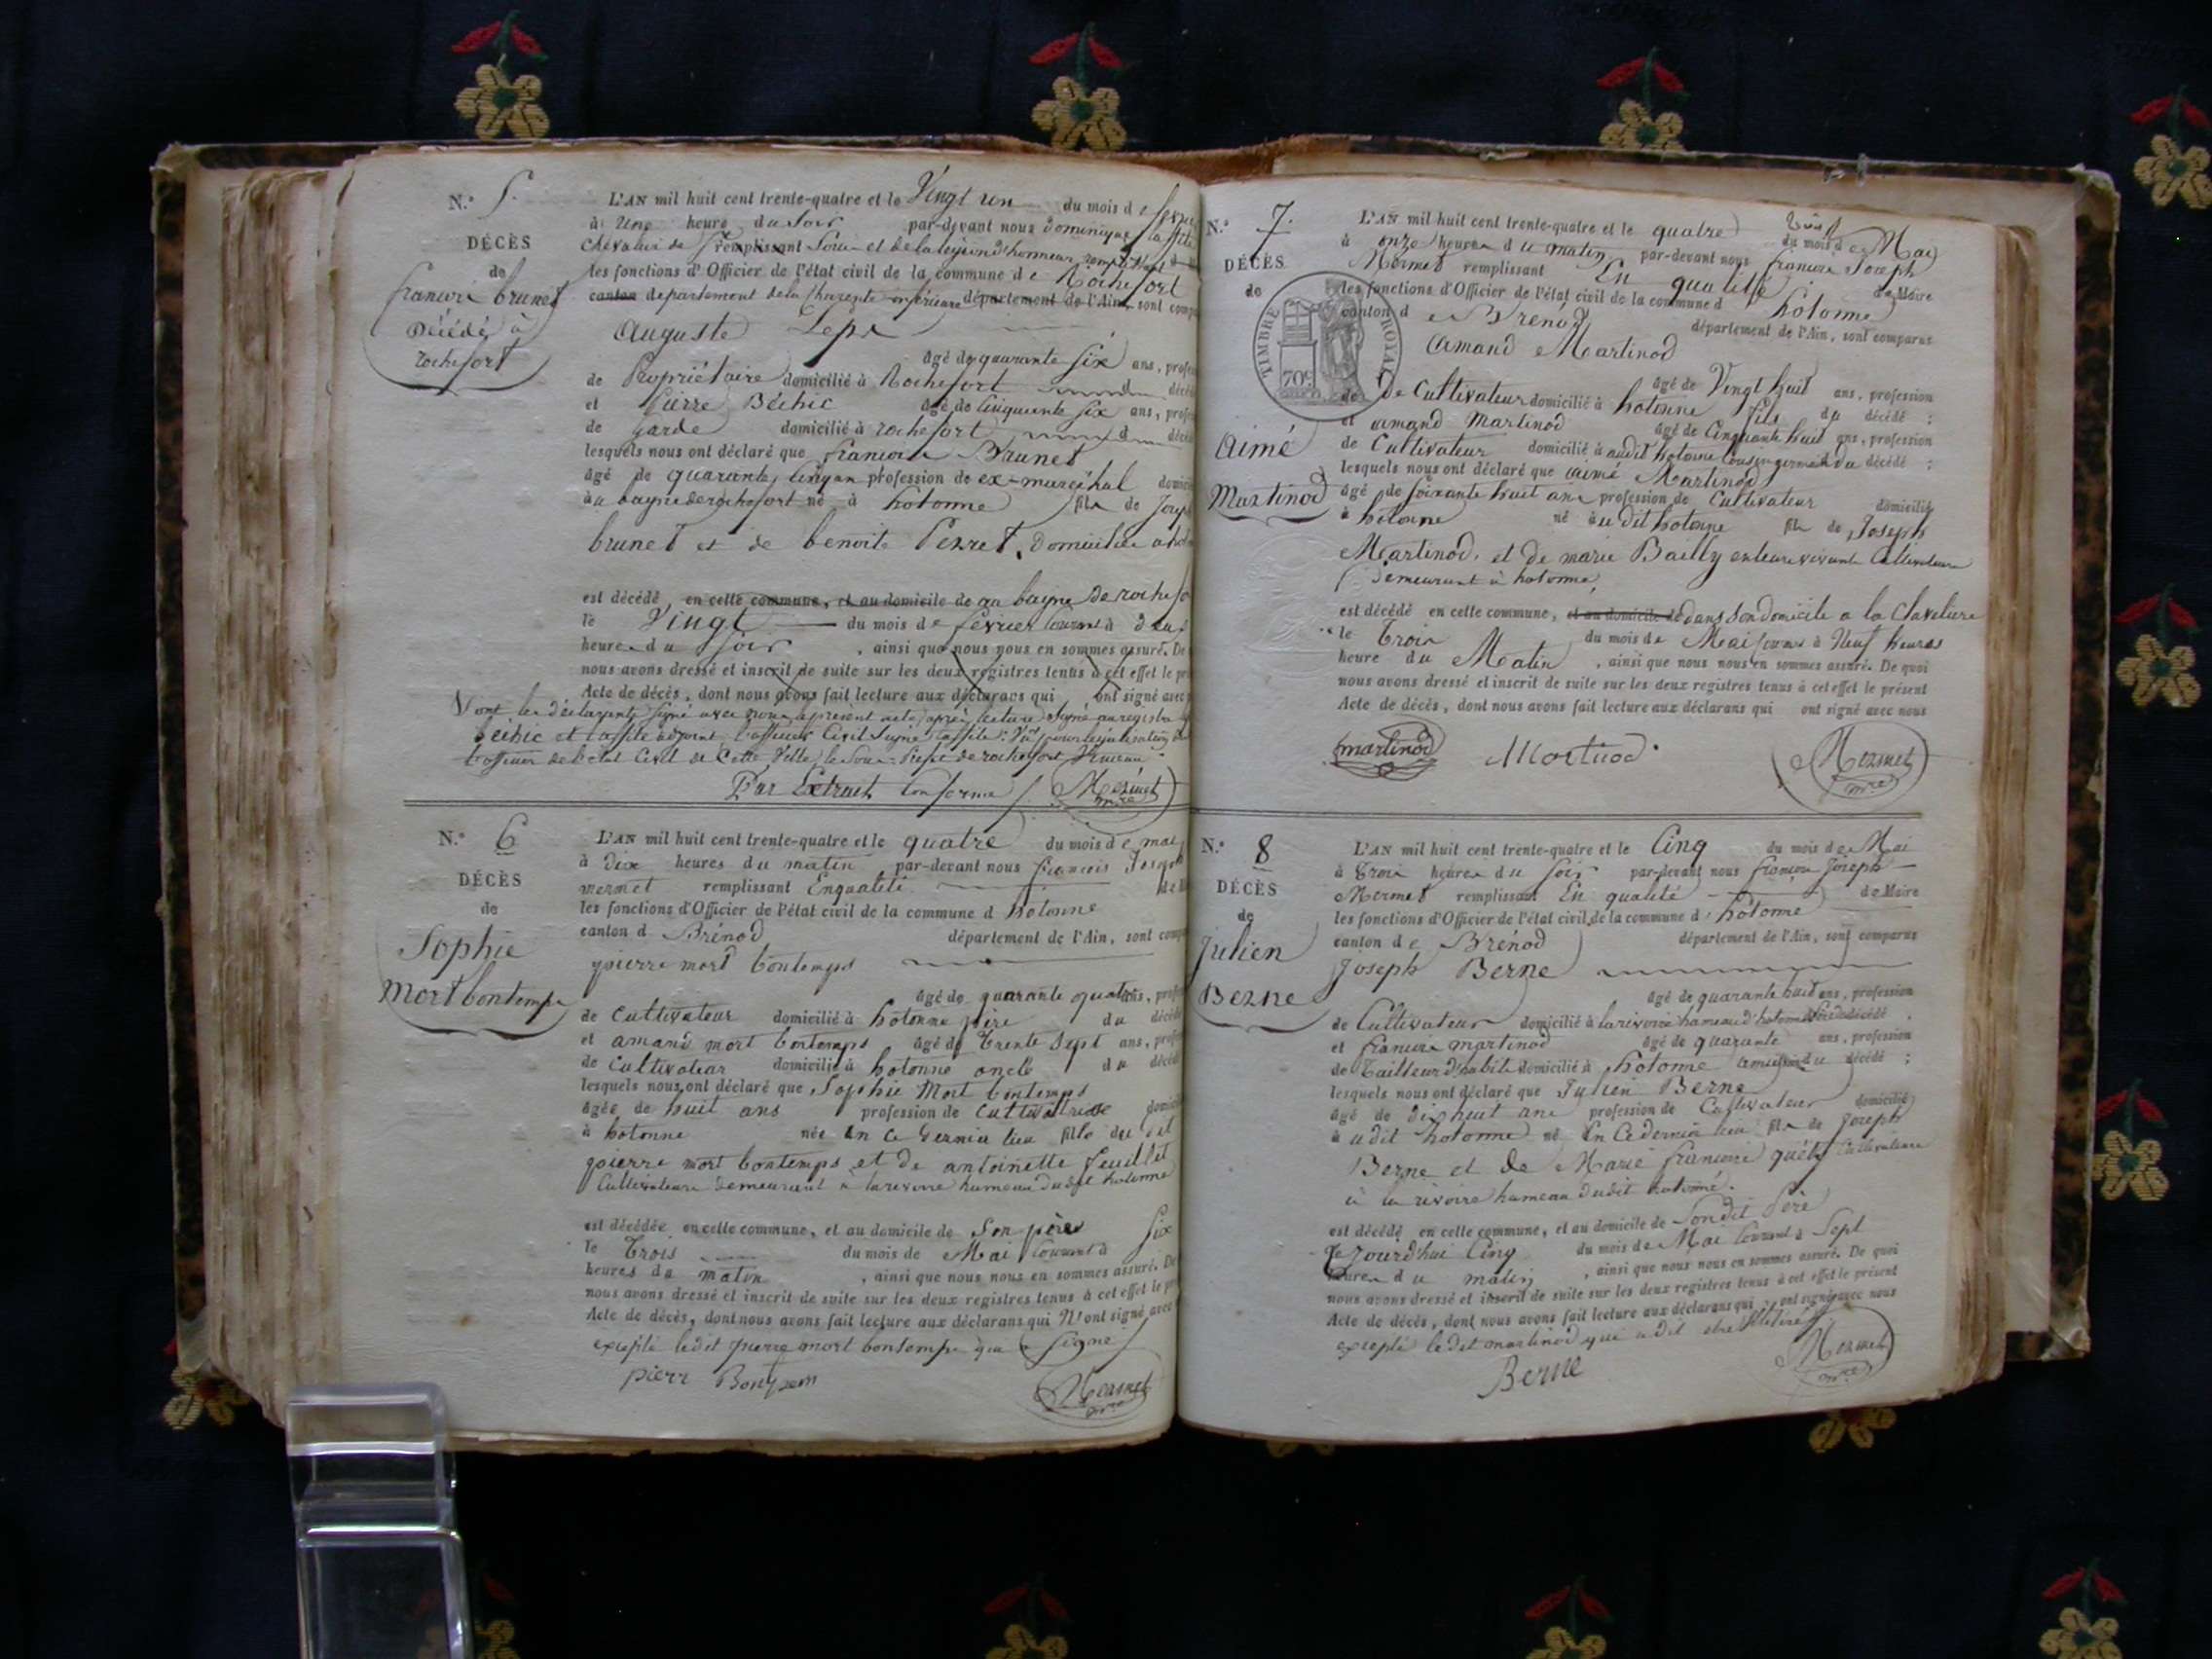 N.° 5.
DÉCÈS
de
francois brunet
Décédé à
rochefort
L'AN mil huit cent trente-quatre et le Vingt un du mois de
à Une heure du Soir par-devant nous dominique
Chevalier de remplissant et de la legion d'honneur
les fonctions d'Officier de l'état civil de la commune de Rochefort
canton departement de la Charente inférieure département de l'Ain, sont
Auguste
âgé de quarante six ans,
de Propriétaire domicilié à Rochefort
et Pierre Béchic âgé de Cinquante Six ans,
de garde domicilié à rochefort
lesquels nous ont déclaré que francois Brunet
âgé de quarante profession de ex-maréchal
au bagne de rochefort né à hotonne fils de
brunet et de benoite Perret, Domiciliés
est décédé en cette commune, et au domicile de au bagne de
le Vingt du mois de fevrier courant à
heure du Soir, ainsi que nous nous en sommes assuré. De
nous avons dressé et inscrit de suite sur les deux registres tenus à cet effet le
Acte de décès, dont nous avons fait lecture aux déclarans qui ont signé avec
Vont les déclarants Signé avec nous le présent acte après lecture Signé au registre
béchic et laffite adjoint l'officier Civil
l'officier de l'état Civil de Cette Ville le Sous-Préfet de rochefort
Par Extrait Conforme Mermet
mre
N.° 6
DÉCÈS
de
Sophie
Mort bontemps
L'AN mil huit cent trente-quatre et le quatre du mois de mai
à Dix heures du matin par-devant nous francois Joseph
mermet remplissant En qualité
les fonctions d'Officier de l'état civil de la commune d hotonne
canton d Brénod département de l'Ain, sont
pierre mort bontemps
âgé de quarante quatre ans,
de Cultivateur domicilié à hotonne père du
et amand mort bontemps âgé de Trente Sept ans,
de Cultivateur domicilié à hotonne oncle du
lesquels nous ont déclaré que Sophie Mort bontemps
âgée de huit ans profession de Cultivatrice
à hotonne née En Ce Dernier lieu fille du dit
pierre mort bontemps et de antoinette feuillet
Cultivateurs demeurant a larivoire hameau dudit hotonne
est décédée en cette commune, et au domicile de Son père
le Trois du mois de Mai Courant à Six
heures du matin, ainsi que nous nous en sommes assuré. De
nous avons dressé et inscrit de suite sur les deux registres tenus à cet effet le
Acte de décès, dont nous avons fait lecture aux déclarans qui N'ont signé avec
excepté ledit pierre mort bontemps qui a Signé
pierr
Mermet
mre
N.° 7.
DÉCÈS
de
Aimé
Martinod
TIMBRE ROYAL
70c
L'AN mil huit cent trente-quatre et le quatre du mois de Mai
à onze heures du matin par-devant nous francois Joseph
Mermet remplissant En qualité de Maire
les fonctions d'Officier de l'état civil de la commune d hotonne
canton de Brenod département de l'Ain, sont comparus
Amand Martinod
âgé de Vingt huit ans, profession
de Cultivateur domicilié à hotonne fils du décédé ;
et amand Martinod âgé de Cinquante huit ans, profession
de Cultivateur domicilié à audit hotonne Cousin germain du décédé ;
lesquels nous ont déclaré que aimé Martinod
âgé de Soixante huit ans profession de Cultivateur domicilié
à hotonne né au dit hotonne fils de Joseph
Martinod. et de marie Bailly enleurs vivants Cultivateurs
demeurant à hotonne
est décédé en cette commune, et au domicile de dans Son domicile a la
le Trois du mois de Mai Courant à Neuf heures
heure du Matin, ainsi que nous nous en sommes assuré. De quoi
nous avons dressé et inscrit de suite sur les deux registres tenus à cet effet le présent
Acte de décès, dont nous avons fait lecture aux déclarans qui ont signé avec nous
martinod Martinod Mermet
mre
N.° 8
DÉCÈS
de
Julien
Berne
L'AN mil huit cent trente-quatre et le Cinq du mois de Mai
à Trois heures du Soir par-devant nous francois Joseph
Mermet remplissant En qualité de Maire
les fonctions d'Officier de l'état civil de la commune d hotonne
canton de Brénod département de l'Ain, sont comparus
Joseph Berne
âgé de quarante huit ans, profession
de Cultivateur domicilié à larivoire hameau d'hotonne décédé,
et francois martinod âgé de quarante ans, profession
de Tailleur d'habits domicilié à hotonne du décédé ;
lesquels nous ont déclaré que Julien Berne
âgé de dix huit ans profession de Cultivateur domicilié
à udit hotonne né En Ce dernier lieu fils de Joseph
Berne et de Marie francoise Cultivateurs
à la rivoire hameau dudit hotonne.
est décédé en cette commune, et au domicile de Sondit Père
le jourd'hui Cinq du mois de Mai Courant à Sept
heures du matin, ainsi que nous nous en sommes assuré. De quoi
nous avons dressé et inscrit de suite sur les deux registres tenus à cet effet le présent
Acte de décès, dont nous avons fait lecture aux déclarans qui ont signé avec nous
excepté ledit martinod qui a dit etre illitéré
Berne
Mermet
mre